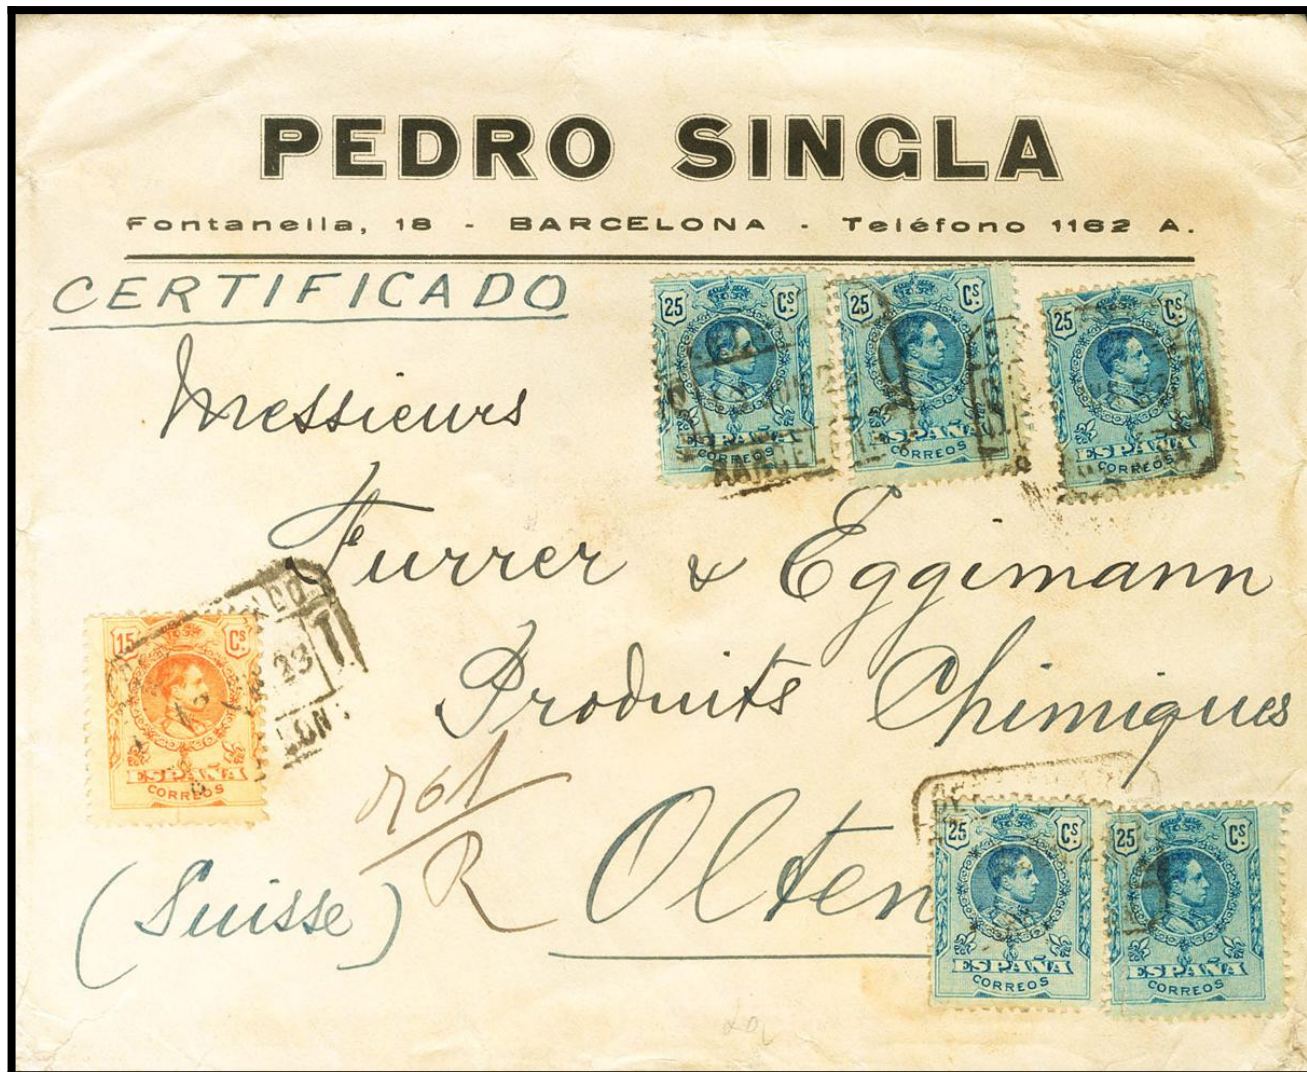 PEDRO SINGLA
Fontanella, 18 - BARCELONA - Teléfono 1162 A.
CERTIFICADO
25 Cs
ESPAÑA
CORREOS
25 Cs
ESPAÑA
CORREOS
25 Cs
ESPAÑA
CORREOS
Messieurs
Furrer & Eggimann
Produits Chimiques
15 Cs
ESPAÑA
CORREOS
23
R
Olten
(Suisse)
25 Cs
ESPAÑA
CORREOS
25 Cs
ESPAÑA
CORREOS